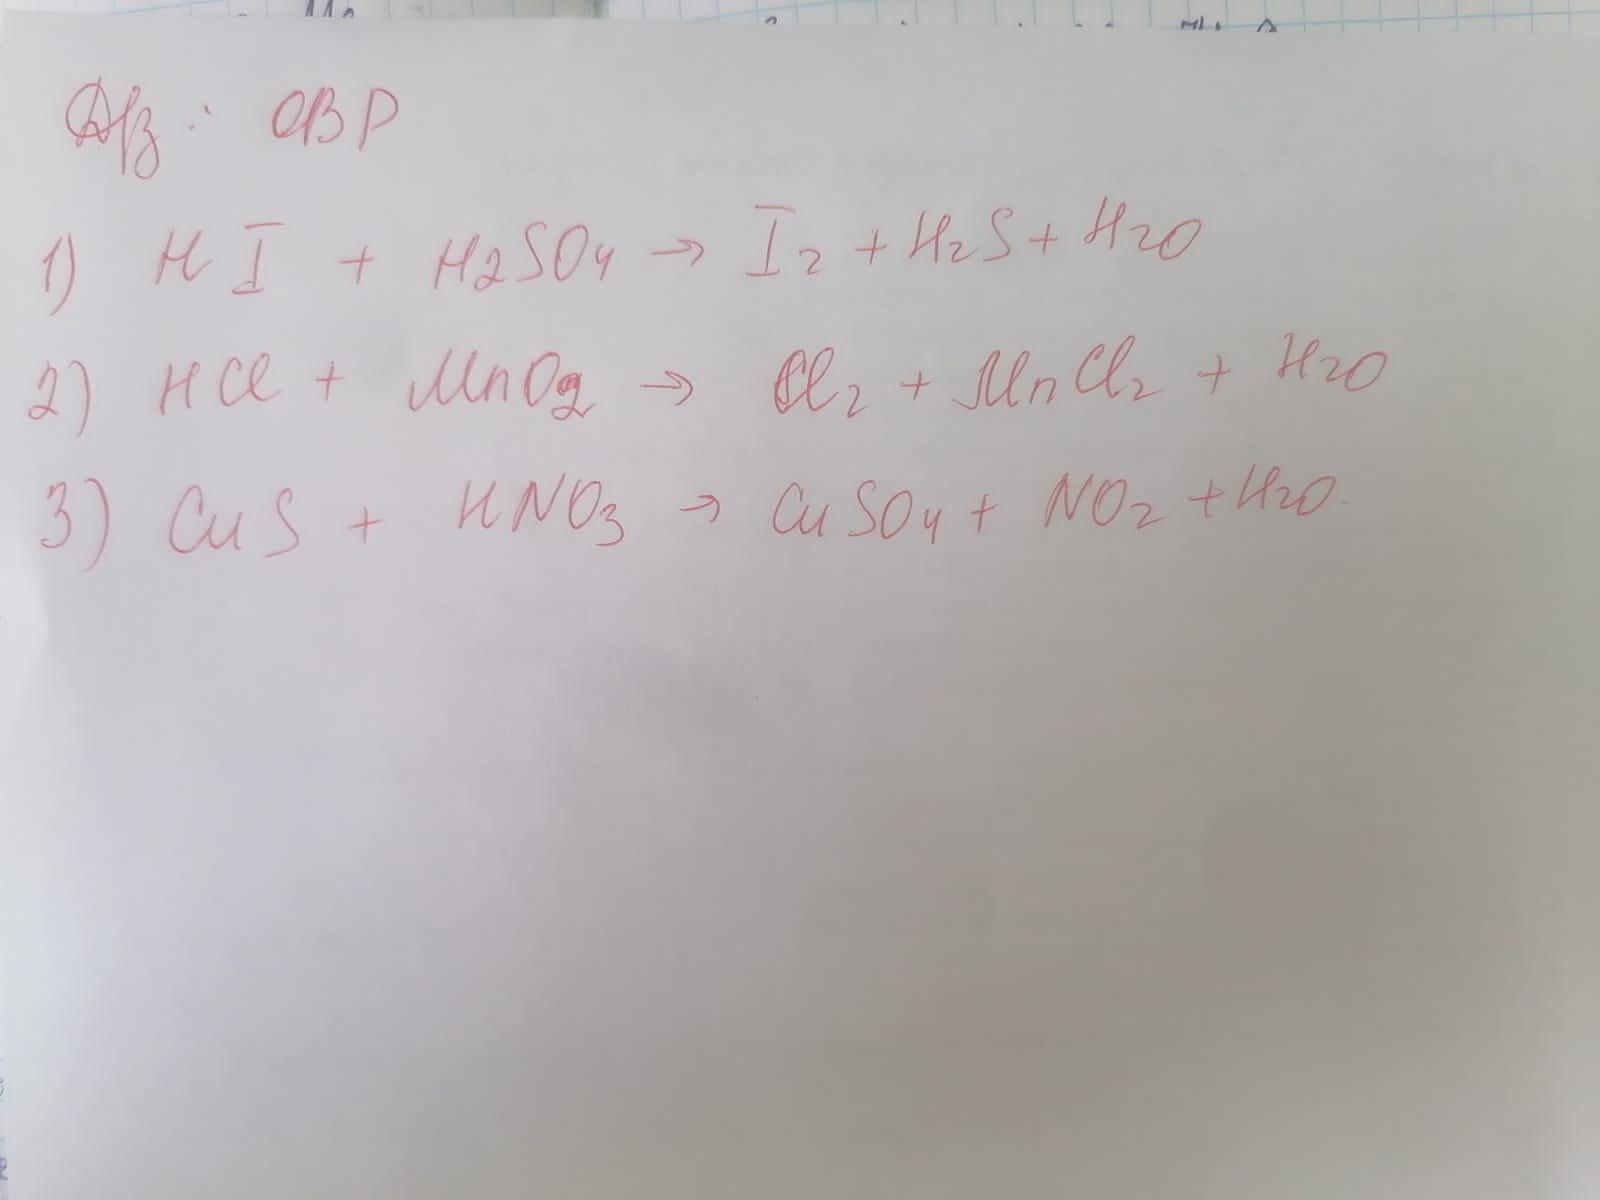 Д/з: ОВР
1) HI + H2SO4 → I2 + H2S + H2O
2) HCl + MnO2 → Cl2 + MnCl2 + H2O
3) CuS + HNO3 → CuSO4 + NO2 + H2O